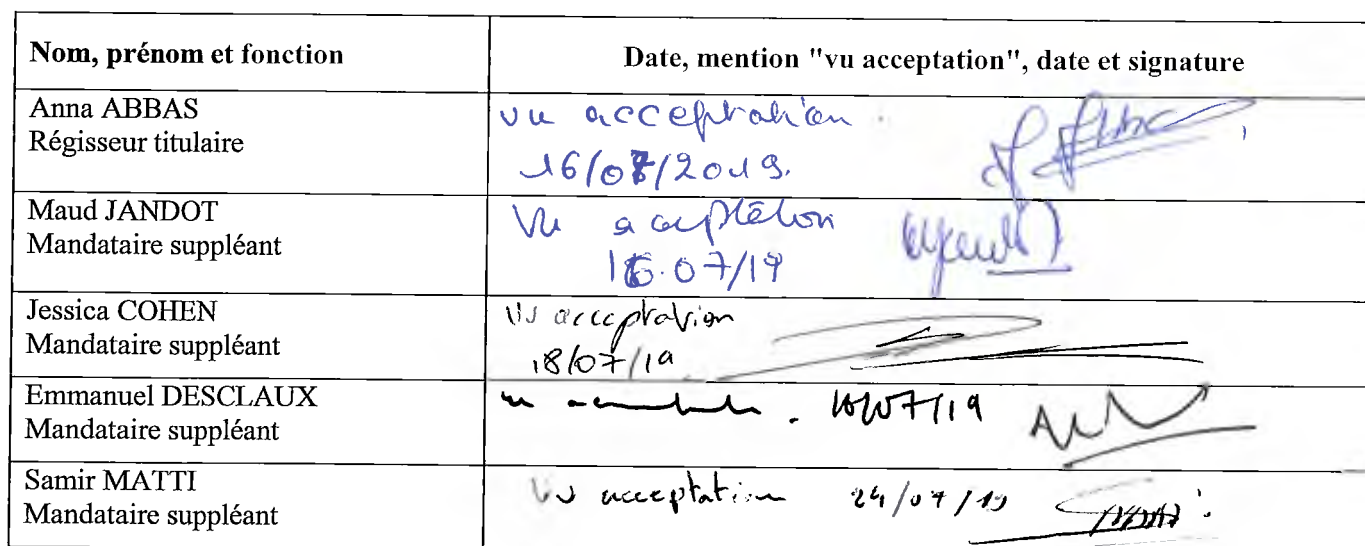 Nom, prénom et fonction
Date, mention "vu acceptation", date et signature
Anna ABBAS
Régisseur titulaire
vu acceptation
16/07/2019.
Maud JANDOT
Mandataire suppléant
Vu acceptation
16.07/19
Jessica COHEN
Mandataire suppléant
Vu acceptation
18/07/19
Emmanuel DESCLAUX
Mandataire suppléant
Samir MATTI
Mandataire suppléant
Vu acceptation 24/07/19